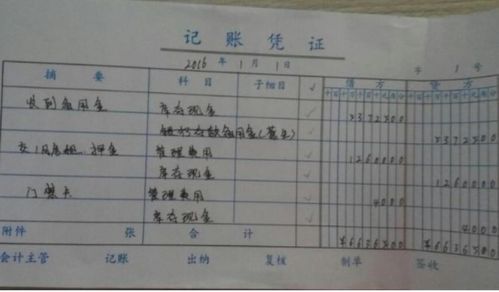 记账凭证
2016年1月1日 字1号
摘要 科目 子细目 √ 借方 贷方
十百十万千百十元角分 十百十万千百十元角分
收到备用金 库存现金 √ 5372500
备用金 √ 5372500
交1月房租、押金 管理费用 √ 1260000
库存现金 √ 1260000
门禁卡 管理费用 √ 4000
库存现金 √ 4000
附件 张 合计 ¥6636500 ¥6636500
会计主管 记账 出纳 复核 制单 签收